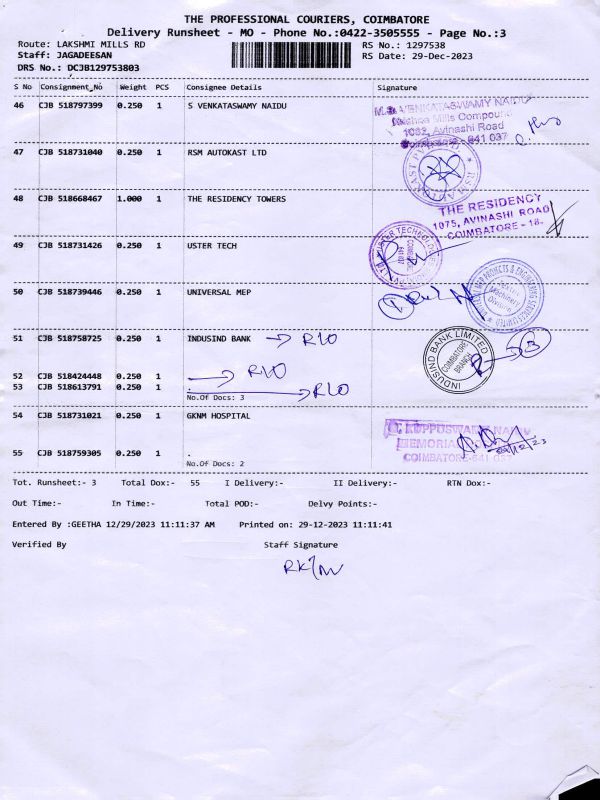 THE PROFESSIONAL COURIERS, COIMBATORE
Delivery Runsheet - MO - Phone No.:0422-3505555 - Page No.:3
Route: LAKSHMI MILLS RD RS No.: 1297538
Staff: JAGADEESAN RS Date: 29-Dec-2023
DRS No.: DCJB129753803
S No Consignment_No Weight PCS Consignee Details Signature
46 CJB 518797399 0.250 1 S VENKATASWAMY NAIDU
VENKATASWAMY NAIDU
Mills Compound
Avinashi Road
641 037
47 CJB 518731040 0.250 1 RSM AUTOKAST LTD
RSM AUTOKAST
48 CJB 518668467 1.000 1 THE RESIDENCY TOWERS
THE RESIDENCY
1075, AVINASHI ROAD
COIMBATORE - 18.
49 CJB 518731426 0.250 1 USTER TECH
USTER TECHNOLOGIES
50 CJB 518739446 0.250 1 UNIVERSAL MEP
PROJECTS & ENGINEERING SERVICES LIMITED
Division
51 CJB 518758725 0.250 1 INDUSIND BANK → R10
INDUSIND BANK LIMITED
COIMBATORE
BRANCH
52 CJB 518424448 0.250 1 → R10
53 CJB 518613791 0.250 1 . → R10
No.Of Docs: 3
54 CJB 518731021 0.250 1 GKNM HOSPITAL
KUPPUSWAMY NAIDU
MEMORIAL
COIMBATORE-641 037
29/12/23
55 CJB 518759305 0.250 1 .
No.Of Docs: 2
Tot. Runsheet:- 3 Total Dox:- 55 I Delivery:- II Delivery:- RTN Dox:-
Out Time:- In Time:- Total POD:- Delvy Points:-
Entered By :GEETHA 12/29/2023 11:11:37 AM Printed on: 29-12-2023 11:11:41
Verified By Staff Signature